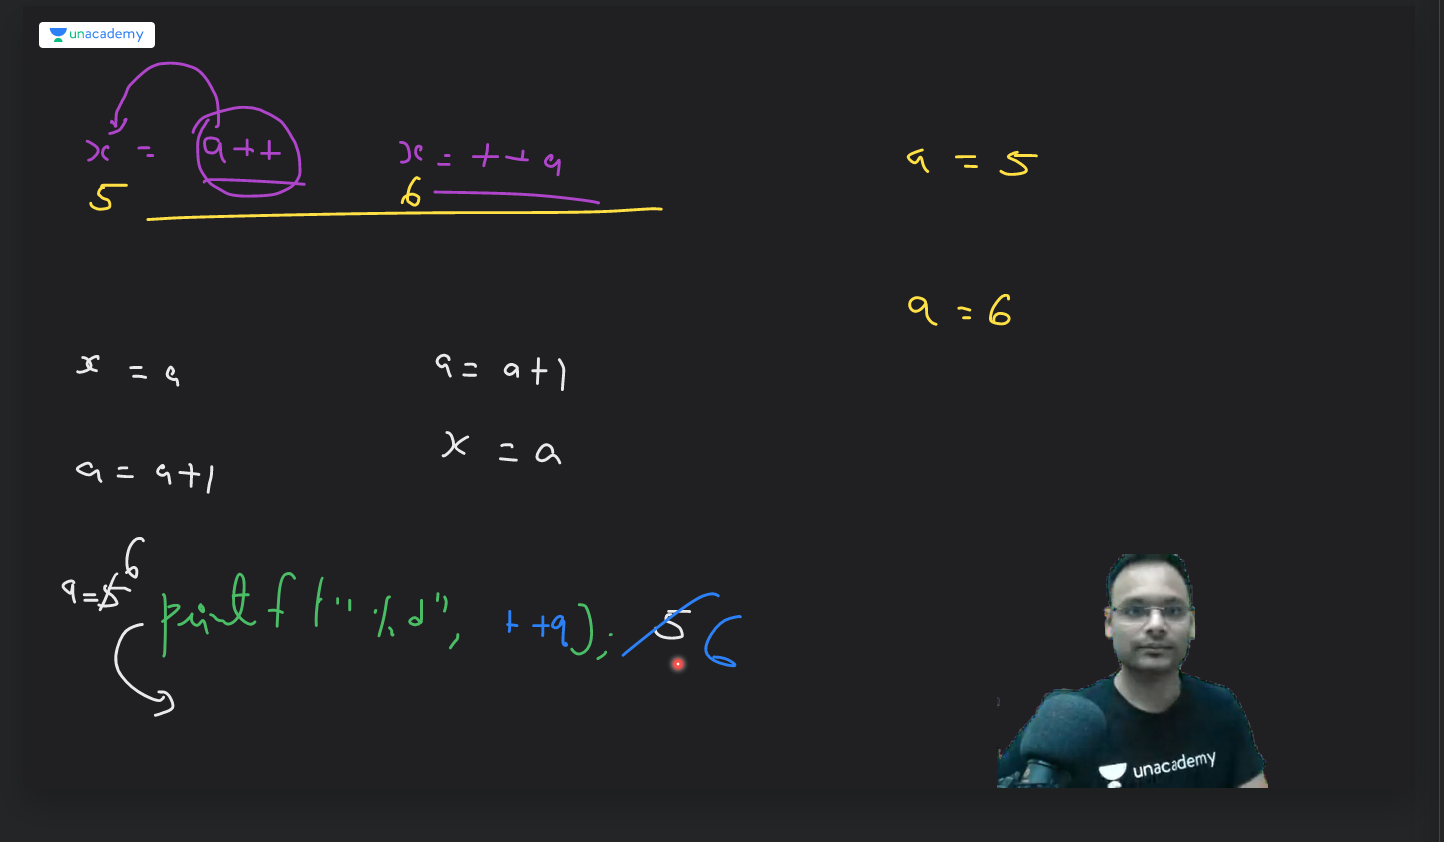 unacademy
x = a++
x = ++a
a = 5
5
6
a = 6
x = a
a = a+1
a = a+1
x = a
6
a=5
printf("%d", ++a);
5
6
unacademy